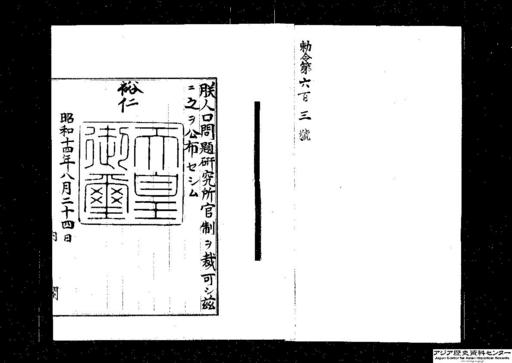 勅令第六百三號
朕人口問題研究所官制ヲ裁可シ茲
ニ之ヲ公布セシム
裕仁
天皇
御璽
昭和十四年八月二十四日
内
閣
アジア歴史資料センター
Japan Center for Asian Historical Records